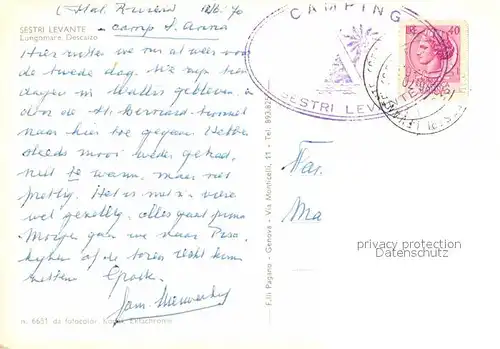 (Ital. Riviera 18/6 '70
SESTRI LEVANTE
Lungomare Descalzo
camp S. Anna
Hier zitten we ons al weer voor
de tweede dag. We zijn tien
dagen in Wallis gebleven en
door de St. Bernard-tunnel
naar hier toe gegaan. Hebben
steeds mooi weder gehad,
niet te warm, maar wel
prettig. Het is met z'n vieren
wel gezellig. Alles gaat prima
Morgen gaan we naar Pisa,
kijken of de toren recht kunnen
zetten Groet
Fam.
n. 6631 da fotocolor Kodak Ektachrome
F.lli Pagano - Genova - Via Monticelli, 11 - Tel. 893.82
CAMPING
SESTRI LEVANTE
40
Fam.
Ma
privacy protection
Datenschutz